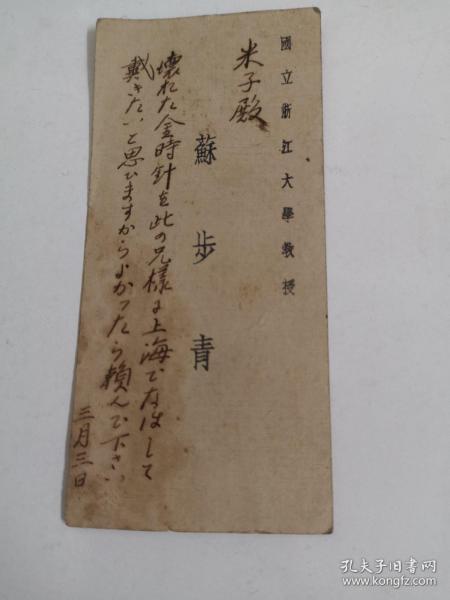 國立浙江大學教授
米子殿
蘇步青
壊れた金時計を此の兄様に上海でなほして
戴きたいと思ひますからよかったら頼んで下さい
三月三日
孔夫子旧书网
www.kongfz.com